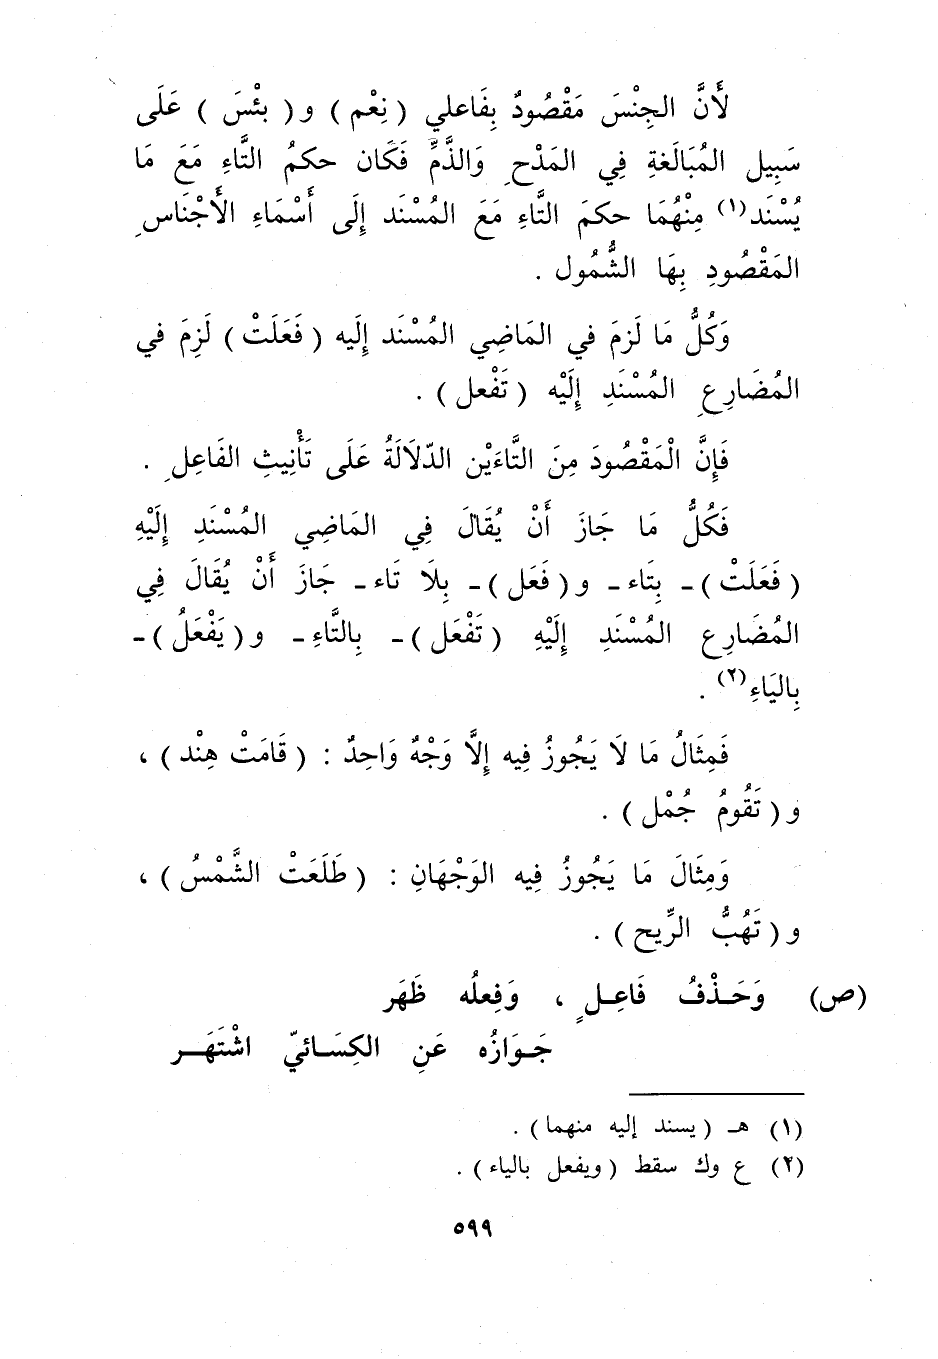 لأَنَّ الجِنْسَ مَقْصُودٌ بِفَاعلي (نِعْم) و(بئْسَ) عَلَى
سَبِيل المُبَالَغةِ فِي المَدْحِ وَالذَّمِّ فَكَان حكمُ التَّاءِ مَعَ مَا
يُسْنَد(١) مِنْهُمَا حكمَ التَّاءِ مَعَ المُسْنَد إِلَى أَسْمَاءِ الأَجْنَاسِ
المَقْصُودِ بِهَا الشُّمُول .
وَكُلُّ مَا لَزمَ في المَاضِي المُسْنَد إِلَيه (فَعَلَتْ) لَزِمَ في
المُضَارِعِ المُسْنَدِ إِلَيْه (تَفْعل) .
فَإِنَّ الْمَقْصُودَ مِنَ التَّاءَيْن الدّلَالَةُ عَلَى تَأْنِيثِ الفَاعِلِ .
فَكُلُّ مَا جَازَ أَنْ يُقَالَ فِي المَاضِي المُسْنَدِ إِلَيْهِ
(فَعَلَتْ)ـ بِتَاءـ و(فَعَل)ـ بِلَا تَاءـ جَازَ أَنْ يُقَالَ فِي
المُضَارِعِ المُسْنَدِ إِلَيْهِ (تَفْعَل)ـ بِالتَّاءِـ و(يَفْعَلُ)ـ
بِاليَاءِ(٢) .
فَمِثَالُ مَا لَا يَجُوزُ فِيه إِلَّا وَجْهٌ وَاحِدٌ : (قَامَتْ هِنْد) ،
و(تَقُومُ جُمْل) .
وَمِثَالَ مَا يَجُوزُ فِيه الوَجْهَانِ : (طَلَعَتْ الشَّمْسُ) ،
و(تَهُبُّ الرِّيح) .
(ص) وَحَـذْفُ فَاعِـلٍ ، وَفِعلُه ظَهَر
جَـوَازُه عَنِ الكِسَـائيّ اشْتَهَـر
(١) هـ (يسند إليه منهما) .
(٢) ع وك سقط (ويفعل بالياء) .
٥٩٩